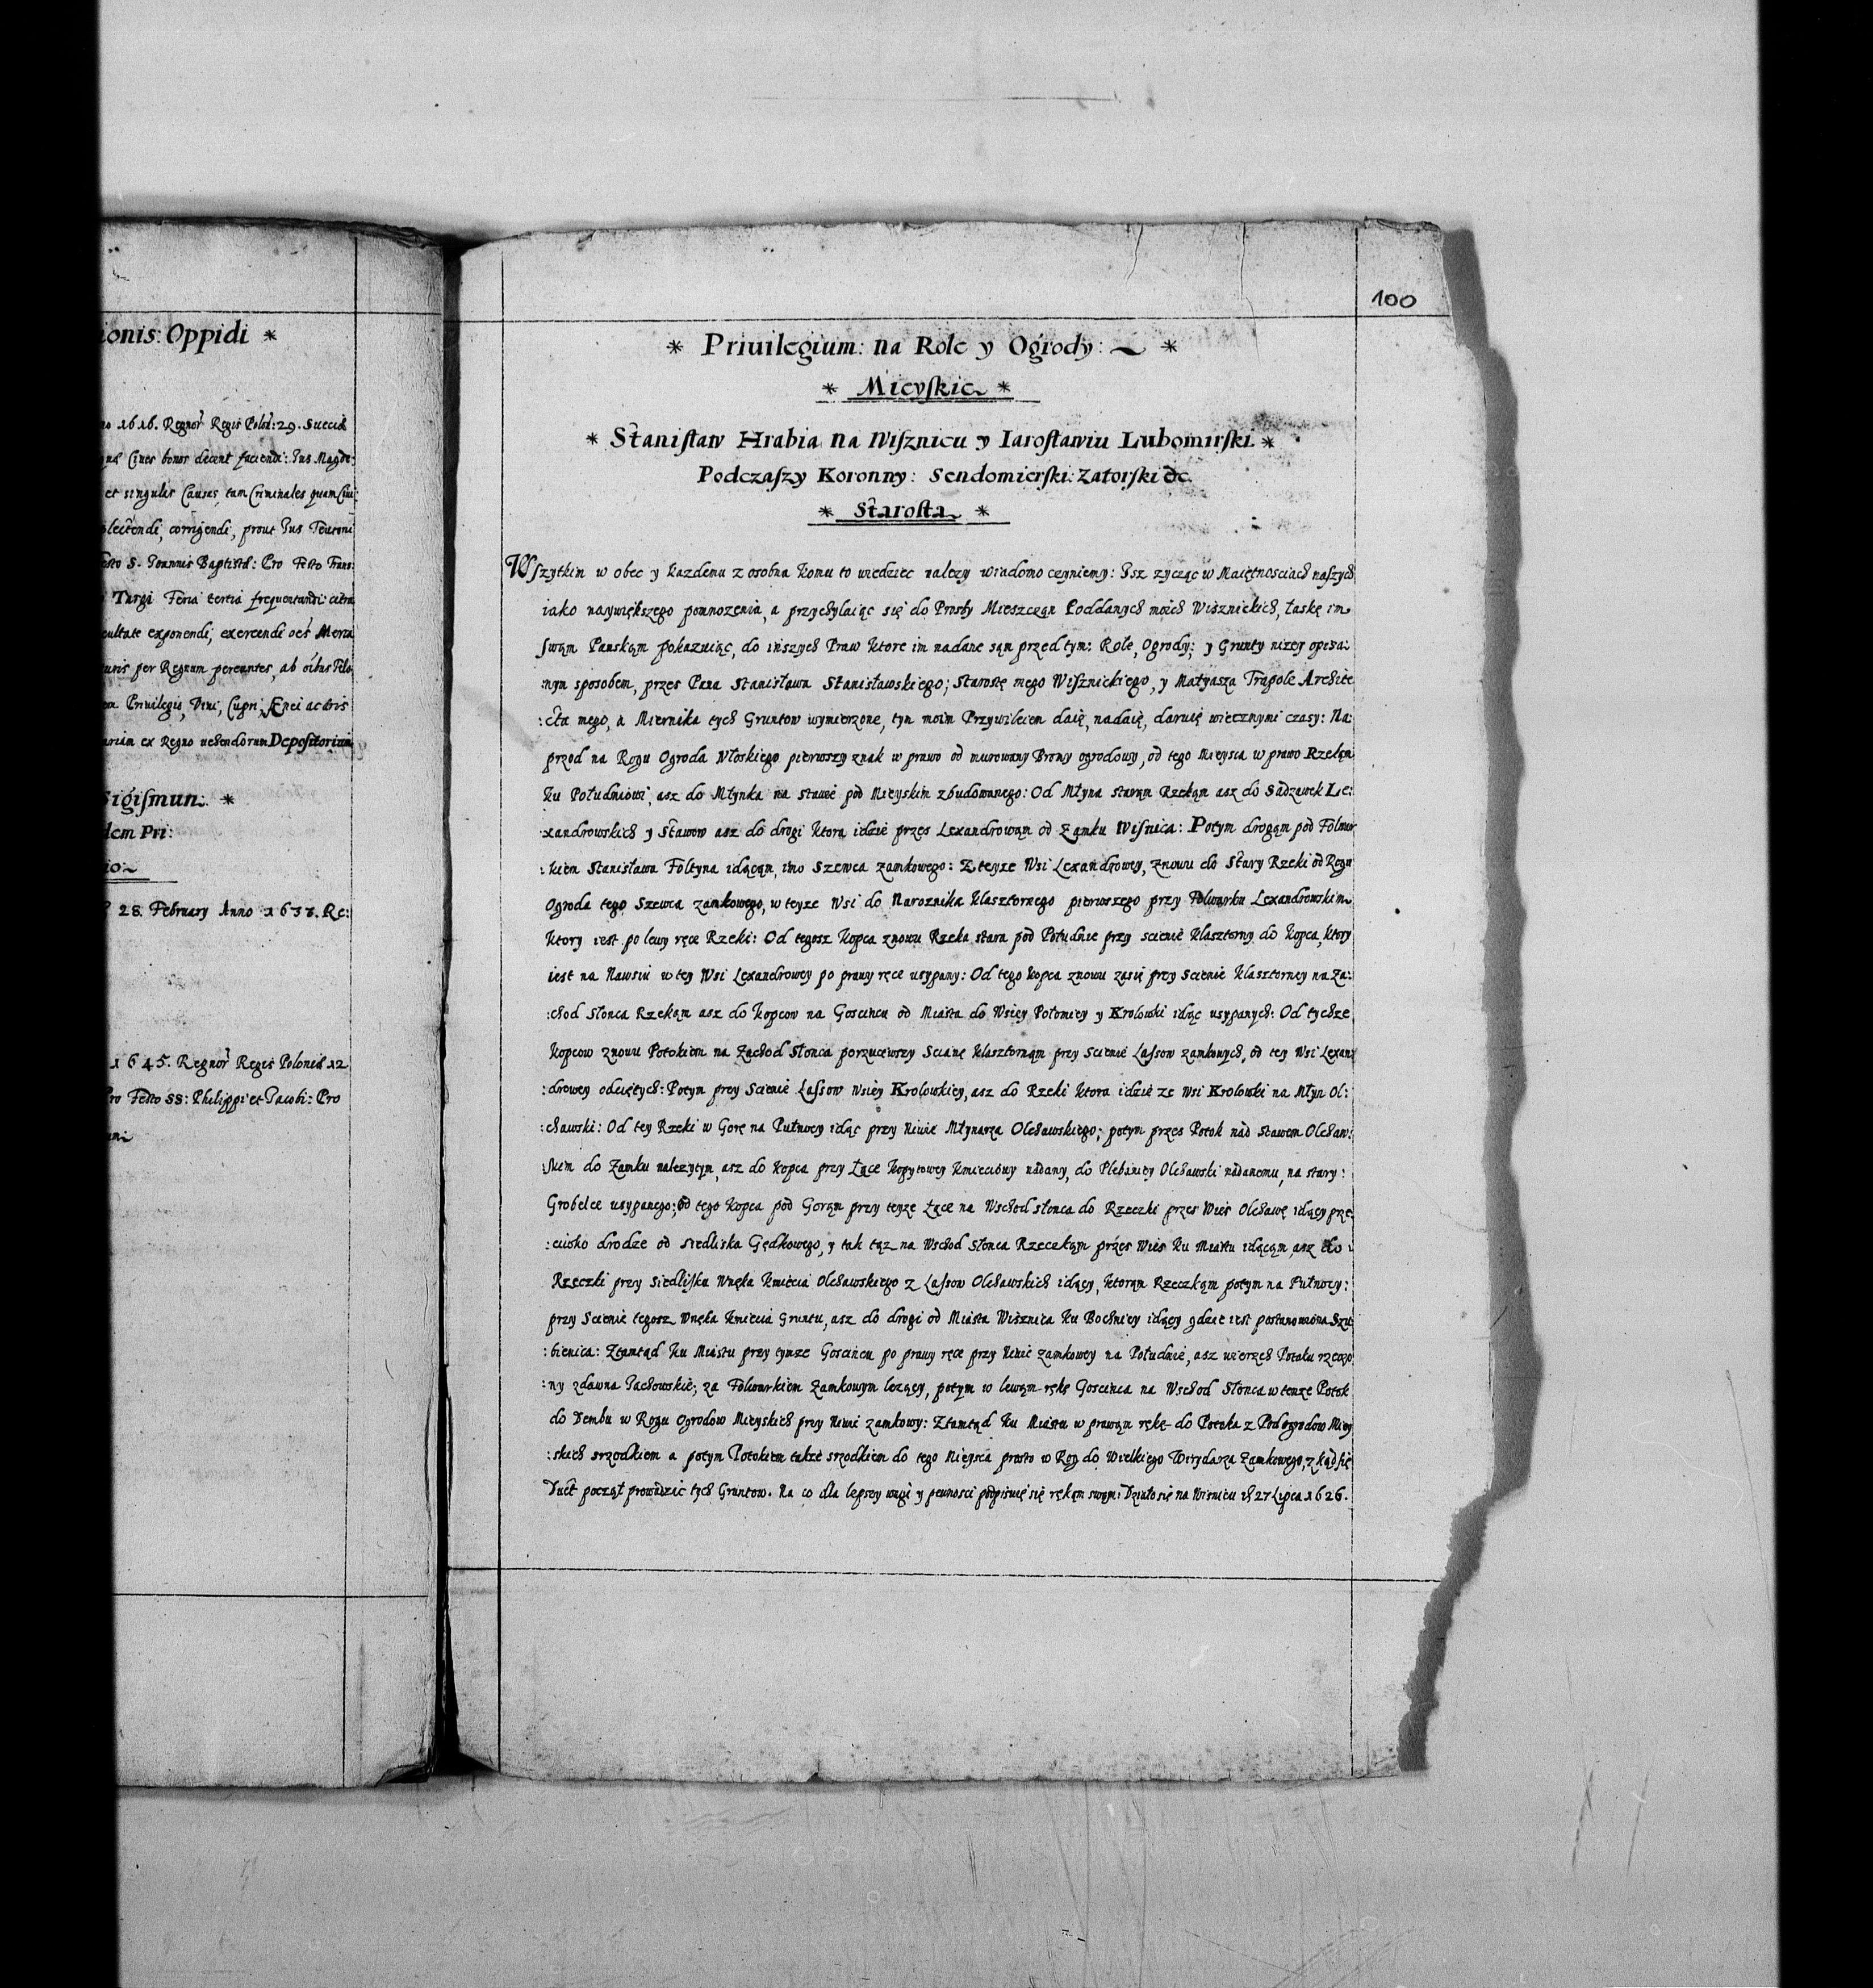 ionis: Oppidi *
no 1616. Regnor Regis Polon: 29. Sueciæ
Ciues bonos decent faciendi: Jus Magde:
et singulas Causas, tam Criminales quam Ciui
plectendi, corrigendi, prout Jus Teutoni
Festo S. Joannis Baptistæ: Pro Festo Trans:
Targi Feria tertia frequentandi: citra
cultate exponendi, exercendi
per Regnum pereuntes, ab
Priuilegio, Vini, Cupri, Ænei
ex Regno uehendorum Depositorium
Sigismun: *
dem Pri:
io~
28. February Anno 1638. Re:
1645. Regnor Regis Poloniæ 12
Pro Festo SS: Philippi et Jacobi: Pro
100
* Priuilegium: na Role y Ogrody: ~ *
* Mieyskie *
* Stanisław Hrabia na Wisznicu y Iarosławiu Lubomirski *
Podczaszy Koronny: Sendomierski: Zatorski &c.
* Starosta *
Wszytkim w obec y kazdemu z osobna komu to wiedziec nalezy wiadomo czyniemy: Isz zycząc w Maiętnosciach naszych
iako naywiększego pomnozenia, a przychylaiąc się do Prosby Mieszczan Poddanych moich Wisznickich, łaskę im
swąm Panskąm pokazuiąc, do inszych Praw ktore im nadane sąm przed tym: Role, Ogrody; y Grunty nizey opisa:
:nym sposobem, przes Pana Stanisława Stanisławskiego; Starostę mego Wisznickiego, y Matyasza Trapole Archite
:cta mego, a Miernika tych Gruntow wymierzone, tym moim Przywileiem daię, nadaię, daruię wiecznymi czasy: Na:
przod na Rogu Ogroda Włoskiego pierwszy znak w prawo od murowany Bromy ogrodowy, od tego Mieysca w prawo Rzekąm
ku Południowi, asz do Młynka na stawie pod Mieyskim zbudowanego: Od Młyna starąm Rzekąm asz do Sadzawek Le:
:xandrowskich y Stawow asz do drogi ktora idzie przes Lexandrowąm od Zamku Wisnica: Potym drogąm pod Folwar
:kiem Stanisława Foltyna idącąm, imo Szewca zamkowego: Z teyze Wsi Lexandrowey, znowu do Stary Rzeki od Rogu
Ogroda tego Szewca zamkowego, w teyze Wsi do Naroznika klasztornego pierwszego przy Folwarku Lexandrowskim
ktory iest po lewy ręce Rzeki: Od tegosz kopca znowu Rzeka stara pod Południe przy scienie klasztorny do kopca, ktory
iest na Nawsiu w tey Wsi Lexandrowey po prawy ręce usypany: Od tego kopca znowu zasię przy Scienie klasztorney na Za:
:chod Słonca Rzekąm asz do kopcow na Goscincu od Miasta do Wsiey Połomiey y Krolowki idąc usypanych: Od tychze
kopcow znowu Potokiem na Zachod Słonca porzucewszy Scianę klasztornąm przy Scienie Lassow zamkowych, od tey Wsi Lexan:
:drowey odciętych: Potym przy Scienie Lassow Wsiey Krolowkiey, asz do Rzeki ktora idzie ze Wsi Krolowki na Młyn Ol:
:chawski: Od tey Rzeki w Gorę na Pułnocy idąc przy Niwie Młynarza Olchawskiego; potym przes Potok nad Stawem Olchaw:
:skim do Zamku nalezytym, asz do kopca przy Łące kopytowey kmieciowy nadany, do Plebaniey Olchawski nadanemu, na stary:
Grobelce usypanego; od tego kopca pod Gorąm przy teyze Łące na Wschod słonca do Rzeczki przes Wies Olchawę idący prze:
:ciwko drodze od Siedliska Gędkowego, y tak tąz na Wschod Słonca Rzeczkąm przes Wies ku Miastu idącąm, asz do
Rzeczki przy Siedlisku Wnęka kmiecia Olchawskiego z Lassow Olchawskich idący, ktorąm Rzeczkąm potym na Pułnocy:
przy Scienie tegosz Wnęka kmiecia Gruntu, asz do drogi od Miasta Wisznica ku Bochniey idący gdzie iest postanowiona Szu
:bienica: Ztamtąd ku Miastu przy tymze Goscincu po prawy ręce przy Niwie zamkowey na Południe, asz wierzch Potoku rzeczo
:ny zdawna Jachowskie; za Folwarkiem Zamkowym lezący, potym w lewąm rękę Goscinca na Wschod Słonca w tenze Potok
do Dembu w Rogu Ogrodow Mieyskich przy Niwie zamkowy: Ztamtąd ku Miastu w prawąm rękę do Potoka z Pod ogrodow Miey
:skich srzodkiem a potym Potokiem takze srzodkiem do tego Mieysca prosto w Rog do Wielkiego Wirydarza Zamkowego, z kąd się
Duct począł prowadzic tych Gruntow. Na co dla lepszy wagi y pewnosci podpisuię się rękąm swąm: Działo się na Wisniczu d 27 Lipca 1626.